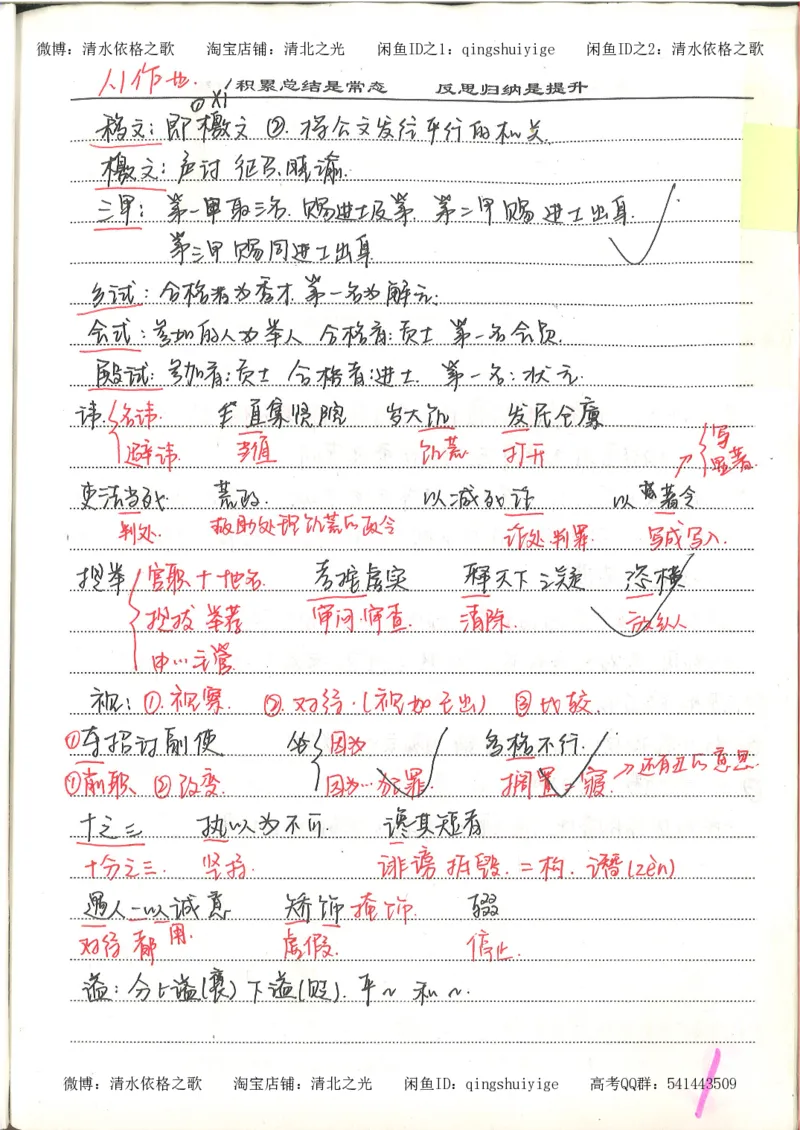 微博：清水依格之歌 淘宝店铺：清北之光 闲鱼ID之1：qingshuiyige 闲鱼ID之2：清水依格之歌
积累总结是常态 反思归纳是提升
① xí
移文：即檄文 ②.将公文发往平行的机关.
檄文：声讨 征召.晓谕.
三甲：第一甲取三名.赐进士及第.第二甲赐进士出身.
第三甲赐同进士出身
乡试：合格者为秀才.第一名为解元.
会式：参加的人为举人 合格者:贡士 第一名会员.
殿试：参加者:贡士 合格者:进士.第一名:状元.
讳.名讳. 直集贤院 岁大饥 发居仓廪
避讳. 当值 饥荒 打开 写 显著.
吏法当死 荒政. 以减死论 以著令
判处. 救助处理饥荒的政令 论处.判罪. 写成写入.
提举 官职十地名 考据虚实 释天下之疑 恣横
提拔 举荐 审问.审查. 清除. 放纵人
中心主管
视：①.视察. ②.对待.(视如己出) ③比较.
①夺招讨副使 坐 因为 各格不行.
①削职、②改变. 因为…犯罪. 搁置=寝. →还有丑的意思.
十之三 执以为不可. 谗其短者
十分之三. 坚持. 诽谤 招毁.=构.谮(zèn)
遇人一以诚意 矫饰 掩饰. 辍
对待 都 用. 虚假. 停止.
谥：分上谥(褒)下谥(贬).平~ 私~.
微博：清水依格之歌 淘宝店铺：清北之光 闲鱼ID：qingshuiyige 高考QQ群：541443509